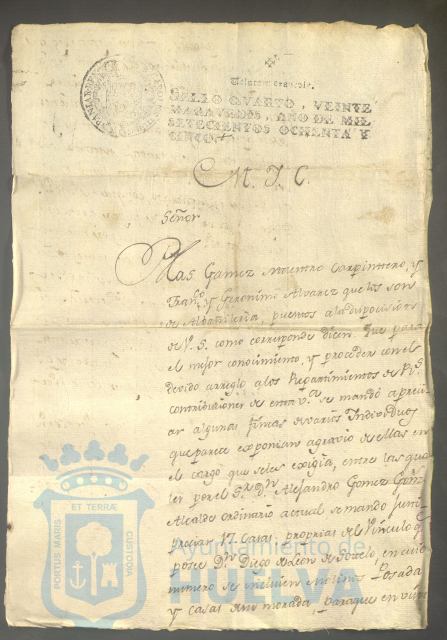 Veinte maravedis.
SELLO QVARTO, VEINTE
MARAVEDIS, AÑO DE MIL
SETECIENTOS OCHENTA Y
CINCO.
M. I. C.
Señor
Blas Gamez Maestro Carpintero, y
Franco. y Geronimo Alvarez que los son
de Albañileria, puestos a la disposicion
de V. S. como corresponde dicen: Que para
el mejor conocimiento, y proceder con el
devido arreglo a los Repartimientos de Rs.
contribuciones de esta va. se mandó apreci-
ar algunas fincas de varios Individuos
que parece exponian agravio de ellas en
el cargo que se les exigia, entre las qua-
les por el Sr. Dn. Alejandro Gomez
Alcalde ordinario actual se mando
apreciar 17 Casas, proprias del Vinculo q.
posee Dn. Diego de Leon de Sotelo, en cuio
numero se incluien molinos Posada
y Casas de su morada, para que en
ET TERRÆ
PORTUS MARIS
CUSTODIA
Ayuntamiento de
HUELVA